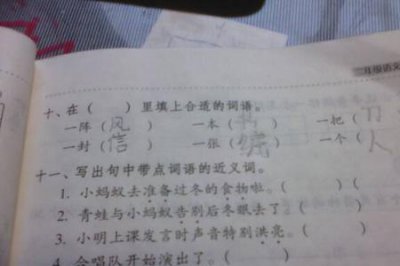 年级语文
十、在（ ）里填上合适的词语。
一阵（风） 一本（书） 一把（刀
一封（信） 一张（ ） 一个（人
十一、写出句中带点词语的近义词。
1. 小蚂蚁去准备过冬的食物啦。（ ）（
2. 青蛙与小蚂蚁告别后冬眠去了（ ）
3. 小明上课发言时声音特别洪亮。（ ）
4. 合唱队开始演出了。（ ）